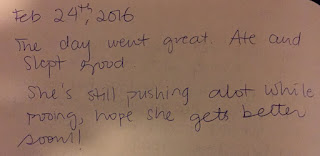 Feb 24th, 2016
The day went great. Ate and
Slept good
She's still pushing alot while
pooing, hope she gets better
soon!!